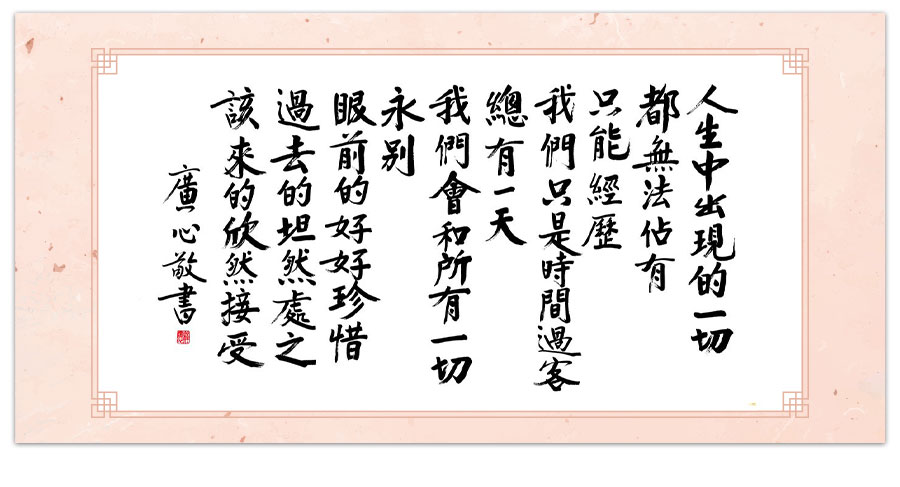 人生中出現的一切
都無法佔有
只能經歷
我們只是時間過客
總有一天
我們會和所有一切
永别
眼前的好好珍惜
過去的坦然處之
該來的欣然接受
廣心敬書